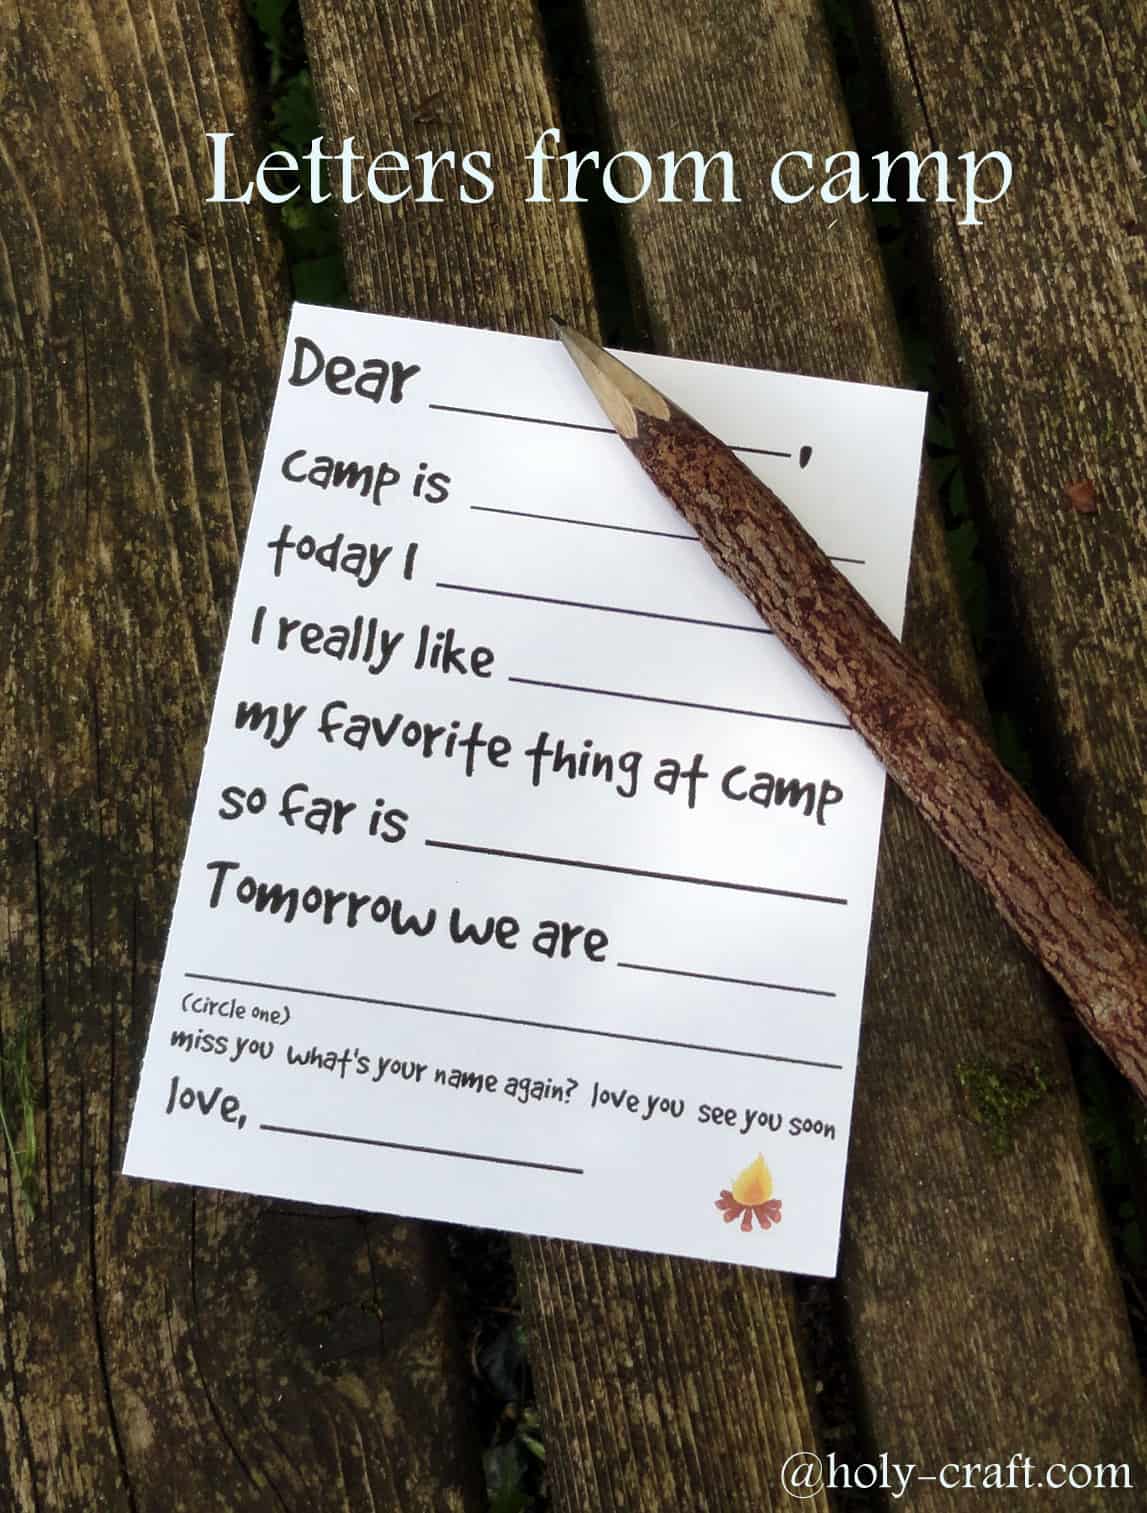 Letters from camp
Dear ____________,
camp is ____________
today I ____________
I really like ____________
my favorite thing at camp
so far is ____________
Tomorrow we are ________
____________________
(circle one)
miss you what's your name again? love you see you soon
love, ____________
@holy-craft.com